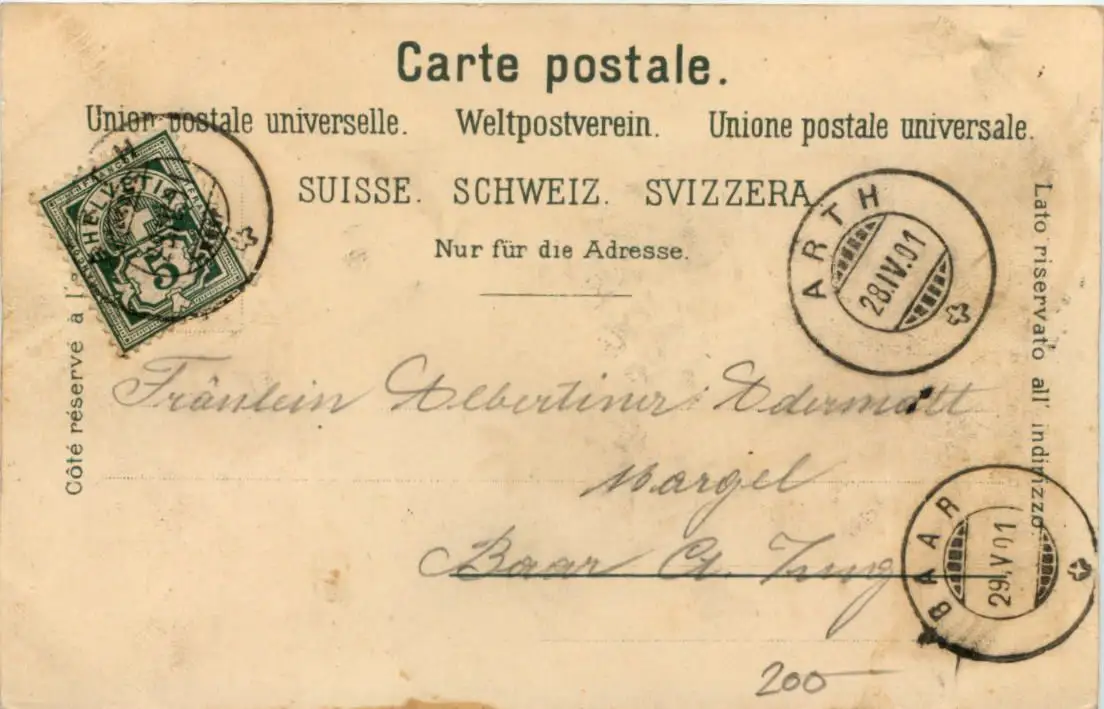 Carte postale.
Union postale universelle. Weltpostverein. Unione postale universale.
SUISSE. SCHWEIZ. SVIZZERA
Nur für die Adresse.
Côté réservé à l'
Lato riservato all' indirizzo.
FRANCO
HELVETIA
5
ARTH
28.IV.01
Fräulein Albertine Odermatt
Margel
Baar Ct. Zug
BAAR
29.IV.01
200